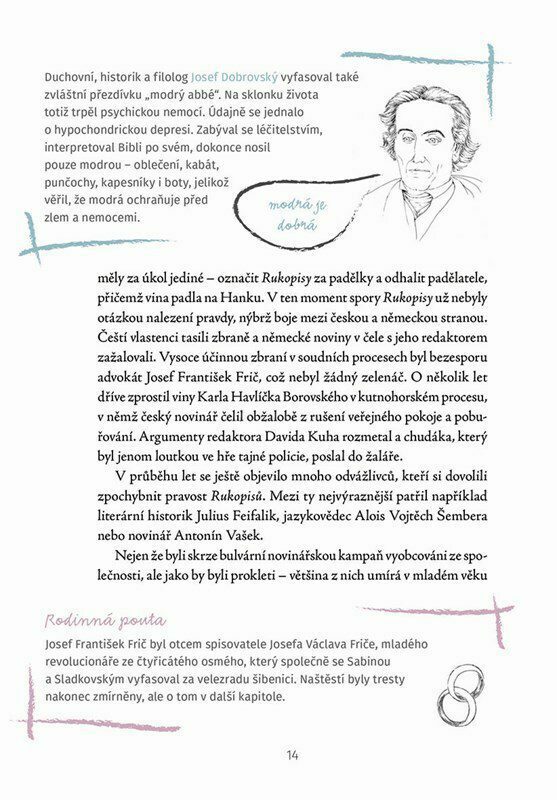 Duchovní, historik a filolog Josef Dobrovský vyfasoval také
zvláštní přezdívku „modrý abbé“. Na sklonku života
totiž trpěl psychickou nemocí. Údajně se jednalo
o hypochondrickou depresi. Zabýval se léčitelstvím,
interpretoval Bibli po svém, dokonce nosil
pouze modrou – oblečení, kabát,
punčochy, kapesníky i boty, jelikož
věřil, že modrá ochraňuje před
zlem a nemocemi.
modrá je
dobrá
měly za úkol jediné – označit Rukopisy za padělky a odhalit padělatele,
přičemž vina padla na Hanku. V ten moment spory Rukopisy už nebyly
otázkou nalezení pravdy, nýbrž boje mezi českou a německou stranou.
Čeští vlastenci tasili zbraně a německé noviny v čele s jeho redaktorem
zažalovali. Vysoce účinnou zbraní v soudních procesech byl bezesporu
advokát Josef František Frič, což nebyl žádný zelenáč. O několik let
dříve zprostil viny Karla Havlíčka Borovského v kutnohorském procesu,
v němž český novinář čelil obžalobě z rušení veřejného pokoje a pobu-
řování. Argumenty redaktora Davida Kuha rozmetal a chudáka, který
byl jenom loutkou ve hře tajné policie, poslal do žaláře.
V průběhu let se ještě objevilo mnoho odvážlivců, kteří si dovolili
zpochybnit pravost Rukopisů. Mezi ty nejvýraznější patřil například
literární historik Julius Feifalik, jazykovědec Alois Vojtěch Šembera
nebo novinář Antonín Vašek.
Nejen že byli skrze bulvární novinářskou kampaň vyobcováni ze spo-
lečnosti, ale jako by byli prokleti – většina z nich umírá v mladém věku
Rodinná pouta
Josef František Frič byl otcem spisovatele Josefa Václava Friče, mladého
revolucionáře ze čtyřicátého osmého, který společně se Sabinou
a Sladkovským vyfasoval za velezradu šibenici. Naštěstí byly tresty
nakonec zmírněny, ale o tom v další kapitole.
14